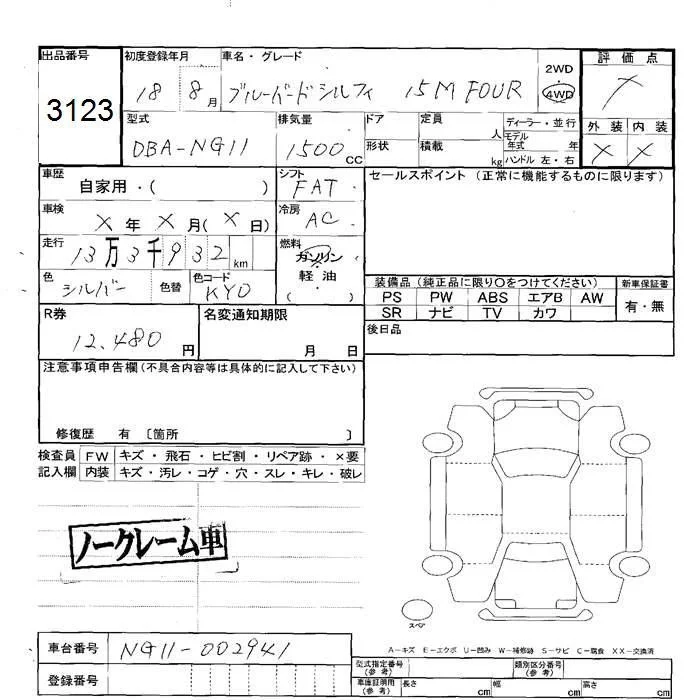 出品番号 初度登録年月 車名・グレード 評価点
3123 18 8月 ブルーバードシルフィ 15M FOUR 2WD 4WD
型式 排気量 ドア 定員 ディーラー・並行 外装 内装
DBA-NG11 1500cc 形状 積載 人 kg モデル年式 年 ハンドル 左・右 × ×
車歴 自家用・( ) シフト FAT セールスポイント (正常に機能するものに限ります)
車検 × 年 × 月(× 日) 冷房 AC
走行 13万3千932km 燃料 ガソリン
軽油
( )
色 シルバー 色替 色コード KY0
装備品 (純正品に限り○をつけてください) 新車保証書
PS PW ABS エアB AW 有・無
SR ナビ TV カワ
R券 12,480円 名変通知期限 月 日 後日品
注意事項申告欄 (不具合内容等は具体的に記入して下さい)
修復歴 有 〔箇所 〕
検査員 FW キズ・飛石・ヒビ割・リペア跡・×要
記入欄 内装 キズ・汚レ・コゲ・穴・スレ・キレ・破レ
ノークレーム車
スペア
A-キズ E-エクボ U-凹み W-補修跡 S-サビ C-腐食 XX-交換済
車台番号 NG11-002941
型式指定番号(参考) 類別区分番号(参考)
登録番号 車庫証明用(参考) 長さ cm 幅 cm 高さ cm